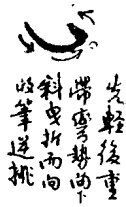 先輕後重
帶彎勢向下
斜曳折而向
收筆送挑